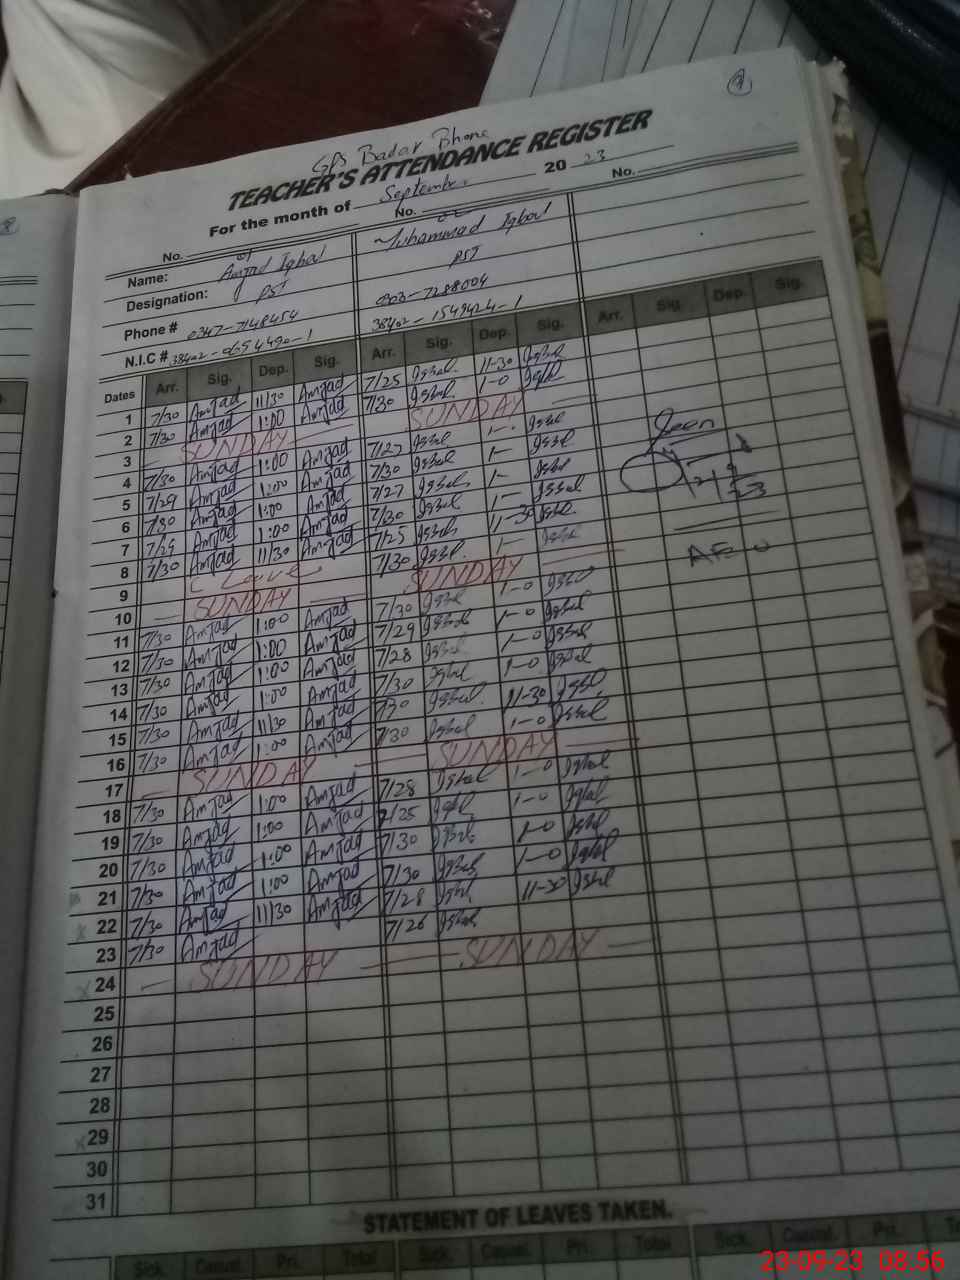 9
GPS Badar Bhone
TEACHER'S ATTENDANCE REGISTER
For the month of September 20 23
No. 01 No. 02 No.
Name: Amjad Iqbal Muhammad Iqbal
Designation: PST PST
Phone # 0347-7148454 0303-7288004
N.I.C # 38402-0654490-1 38402-1549424-1
Dates Arr. Sig. Dep. Sig. Arr. Sig. Dep. Sig. Arr. Sig. Dep. Sig.
1 7/30 Amjad 11/30 Amjad 7/25 Iqbal 11-30 Iqbal
2 7/30 Amjad 1:00 Amjad 7/30 Iqbal 1-0 Iqbal
3 SUNDAY SUNDAY
4 7/30 Amjad 1:00 Amjad 7/27 Iqbal 1- Iqbal
5 7/29 Amjad 1:00 Amjad 7/30 Iqbal 1- Iqbal
6 7/30 Amjad 1:00 Amjad 7/27 Iqbal 1- Iqbal
7 7/25 Amjad 1:00 Amjad 7/30 Iqbal 1- Iqbal
8 7/30 Amjad 11/30 Amjad 7/25 Iqbal 11-30 Iqbal
9 Leave 7/30 Iqbal 1- Iqbal
10 SUNDAY SUNDAY
11 7/30 Amjad 1:00 Amjad 7/30 Iqbal 1-0 Iqbal
12 7/30 Amjad 1:00 Amjad 7/29 Iqbal 1-0 Iqbal
13 7/30 Amjad 1:00 Amjad 7/28 Iqbal 1-0 Iqbal
14 7/30 Amjad 1:00 Amjad 7/30 Iqbal 1-0 Iqbal
15 7/30 Amjad 11/30 Amjad 7/30 Iqbal 11-30 Iqbal
16 7/30 Amjad 1:00 Amjad 7/30 Iqbal 1-0 Iqbal
17 SUNDAY SUNDAY
18 7/30 Amjad 1:00 Amjad 7/28 Iqbal 1-0 Iqbal
19 7/30 Amjad 1:00 Amjad 7/25 Iqbal 1-0 Iqbal
20 7/30 Amjad 1:00 Amjad 7/30 Iqbal 1-0 Iqbal
21 7/30 Amjad 1:00 Amjad 7/30 Iqbal 1-0 Iqbal
22 7/30 Amjad 11/30 Amjad 7/28 Iqbal 11-30 Iqbal
23 7/30 Amjad 7/26 Iqbal
24 SUNDAY SUNDAY
25
26
27
28
29
30
31
Seen
STATEMENT OF LEAVES TAKEN.
Sick. Casual. Pri. Total Sick. Casual. Pri. Total Sick. Casual. Pri.
23-09-23 08:56